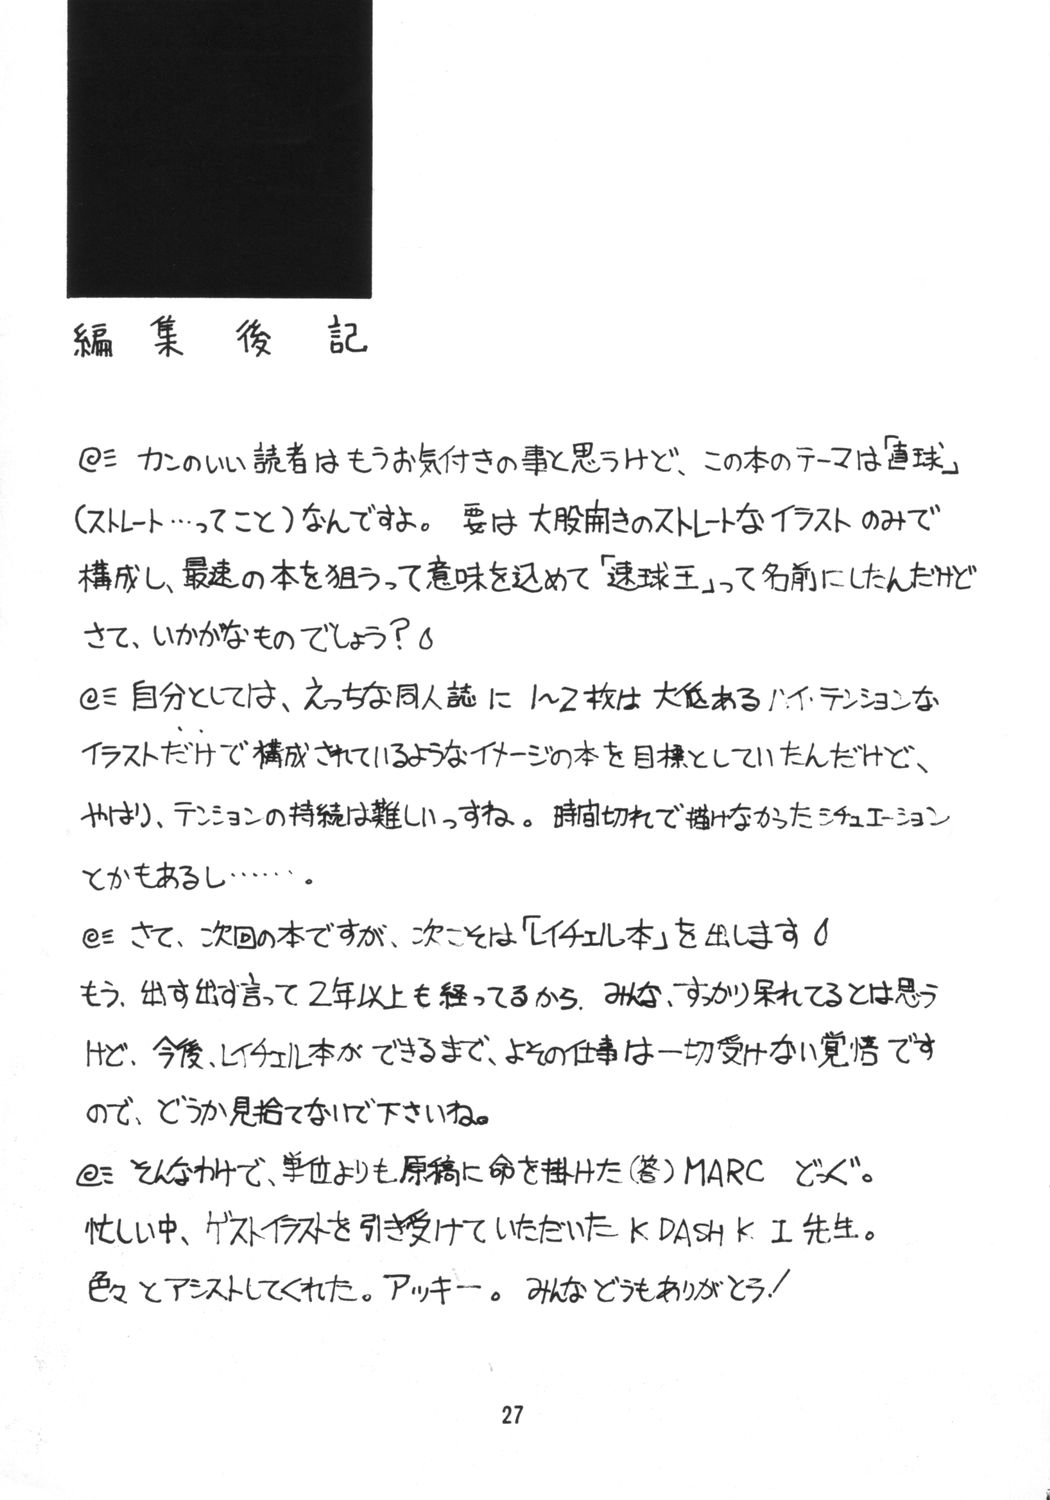 編集後記
カンのいい読者はもうお気付きの事と思うけど、この本のテーマは「直球」
(ストレート…ってこと)なんですよ。 要は大股開きのストレートなイラストのみで
構成し、最速の本を狙うって意味を込めて「速球王」って名前にしたんだけど
さて、いかがなものでしょう?
自分としては、えっちな同人誌に 1〜2枚は大低あるハイ・テンションな
イラストだけで構成されているようなイメージの本を目標としていたんだけど、
やはり、テンションの持続は難しいっすね。 時間切れで描けなかったシチュエーション
とかもあるし……。
さて、次回の本ですが、次こそは「レイチェル本」を出します
もう、出す出す言って2年以上も経ってるから、みんな、すっかり呆れてるとは思う
けど、今後、レイチェル本ができるまで、よその仕事は一切受けない覚悟です
ので、どうか見捨てないで下さいね。
そんなわけで、単位よりも原稿に命を掛けた(答)MARC どっぐ。
忙しい中、ゲストイラストを引き受けていただいた K DASH K I 先生。
色々とアシストしてくれた。アッキー。 みんなどうもありがとう!
27